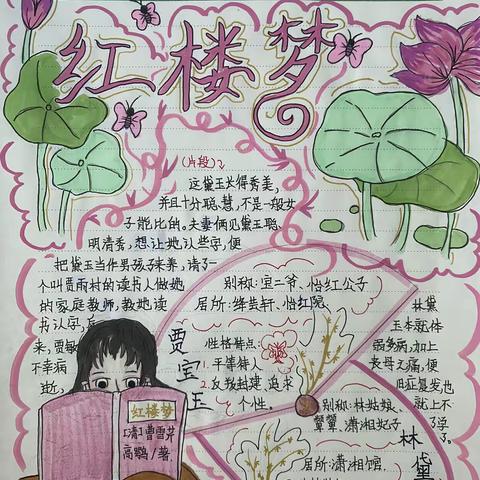 红楼梦
(片段)2
这黛玉长得秀美,
并且十分聪慧,不是一般女
子能比的。夫妻俩见黛玉聪
明清秀,想让她认些字,便
把黛玉当作男孩子来养,请了一
个叫贾雨村的读书人做她
的家庭教师,教她读
书认字,后
来,贾敏
不幸病
逝,
林黛
玉本就体
弱多病,加上
丧母之痛,便
旧症复发也
就上不
了学
了。
贾宝玉
别称:宝二爷、怡红公子
居所:绛芸轩、怡红院
性格特点:
1.平等待人
2.反叛封建,追求
个性。
林黛
别称:林姑娘、
颦颦、潇湘妃子
居所:潇湘馆
红楼梦
[清]曹雪芹
高鹗/著